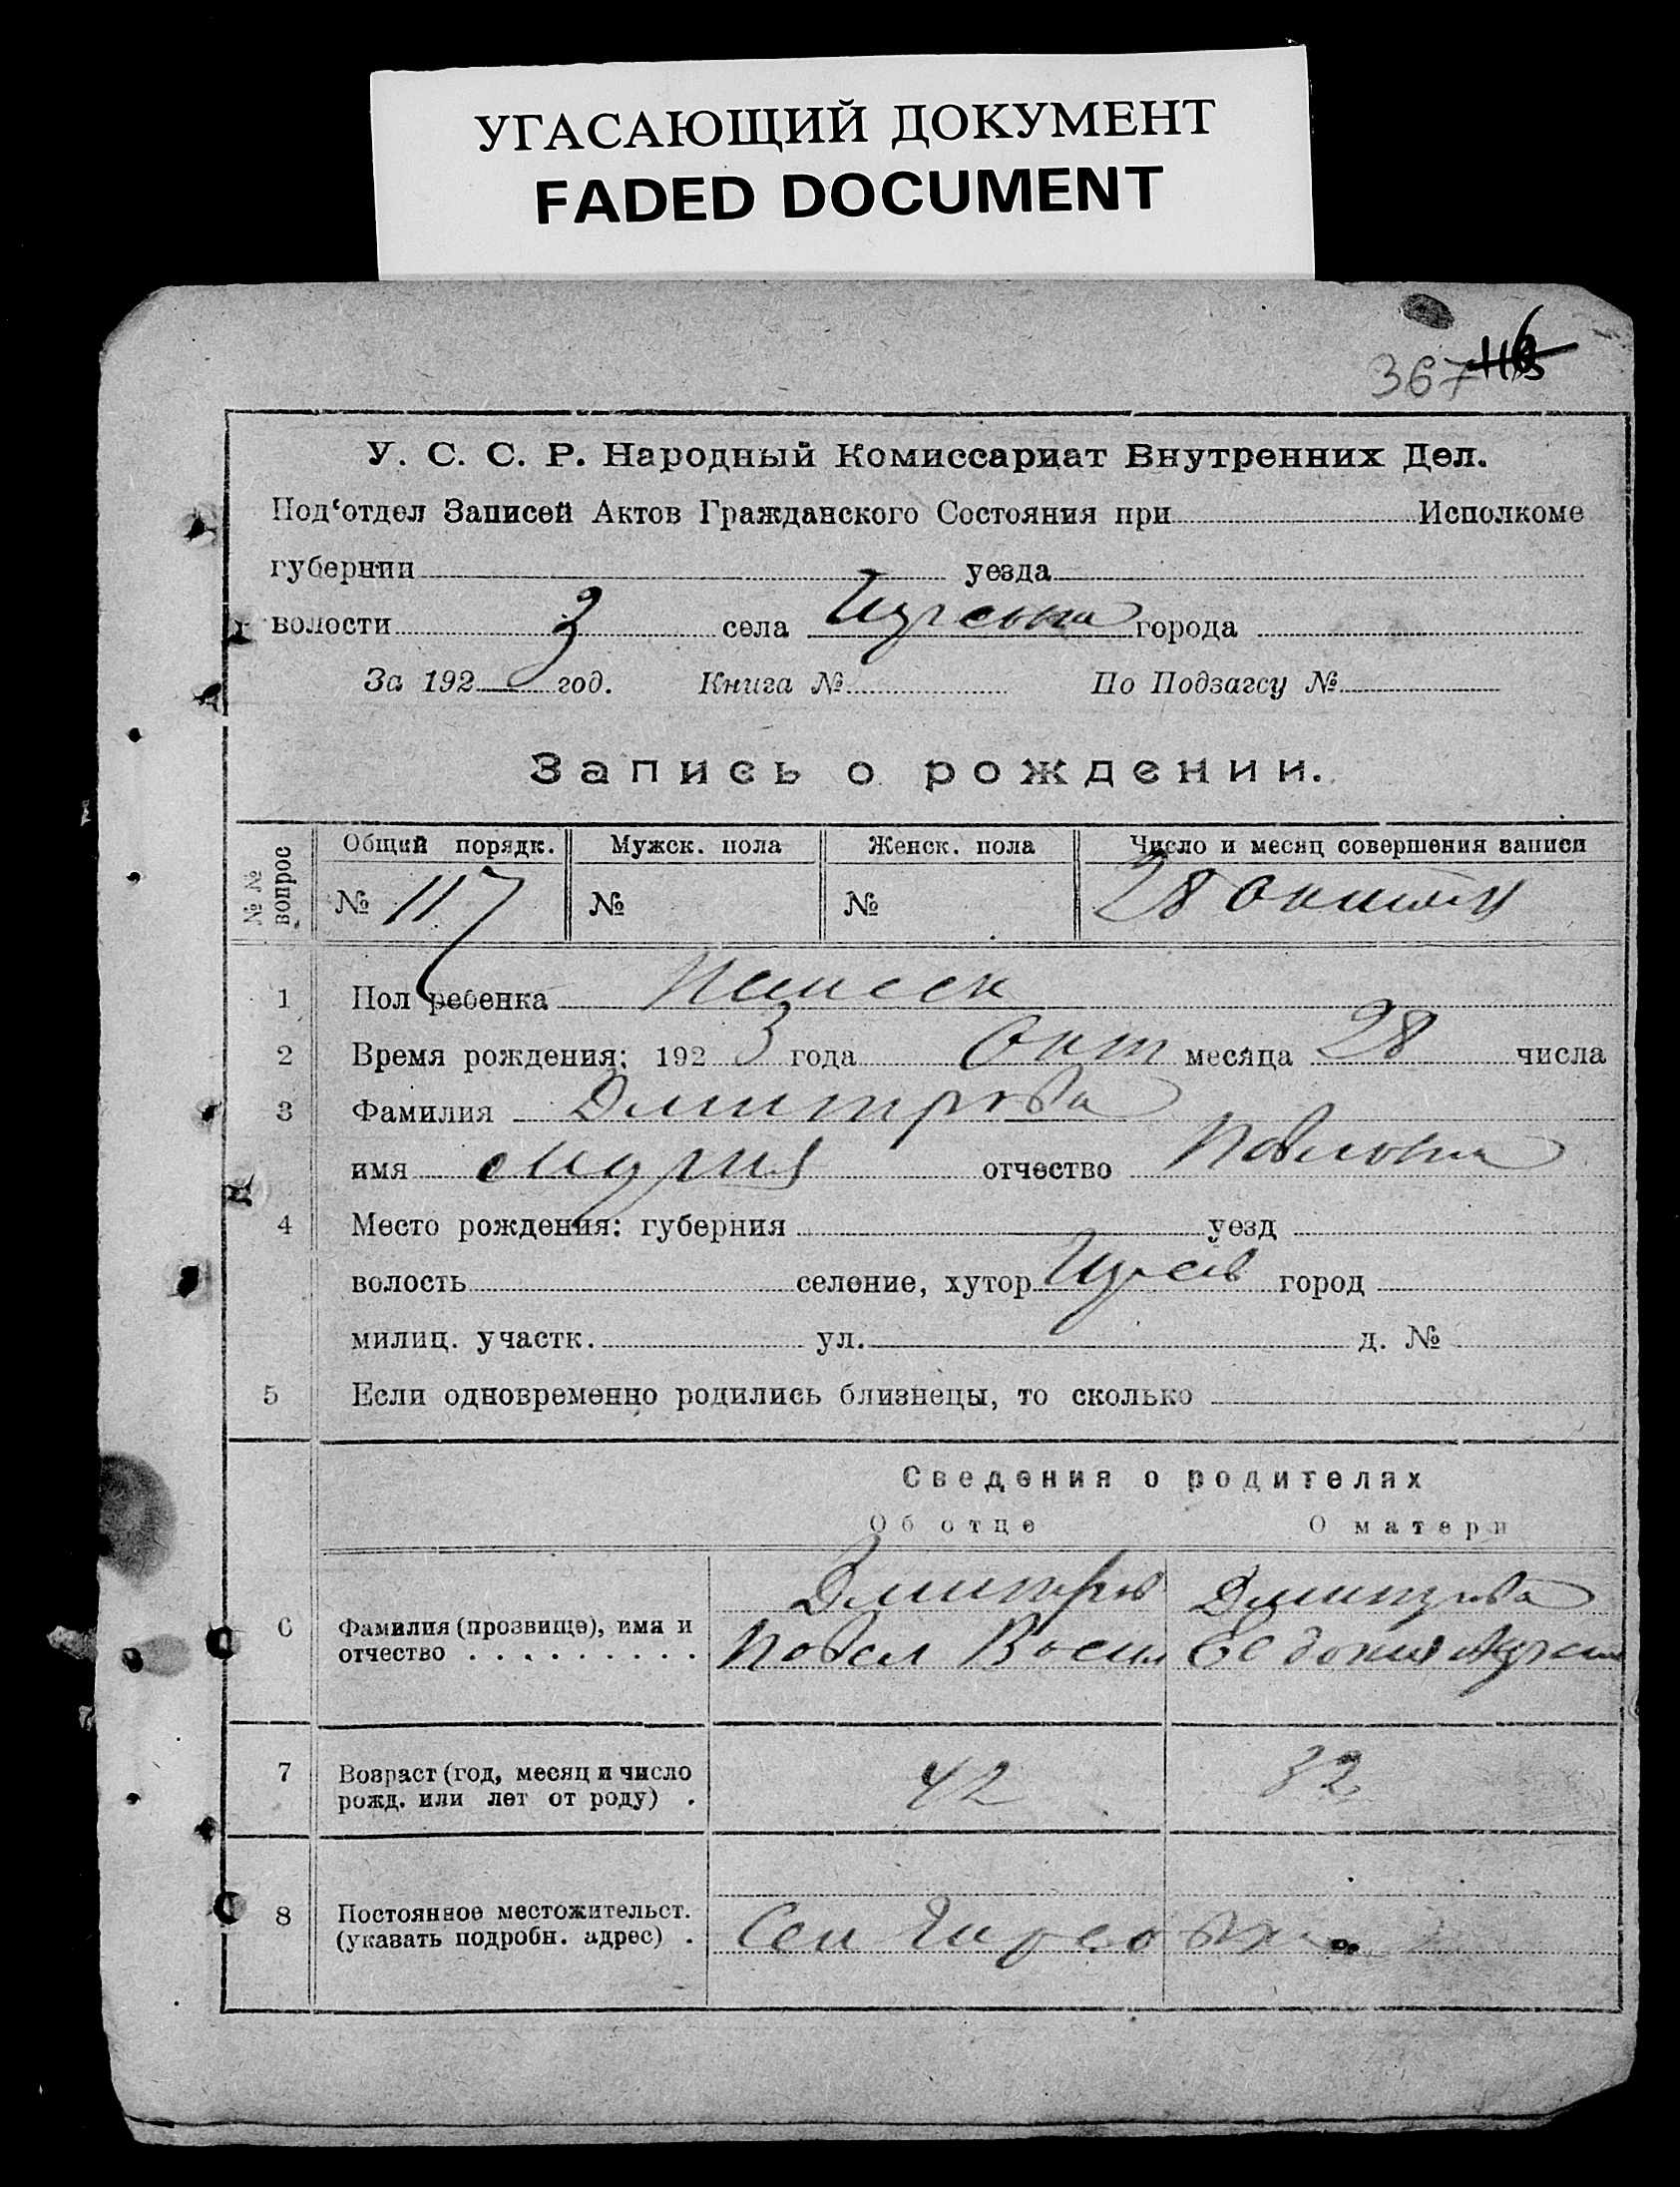 УГАСАЮЩИЙ ДОКУМЕНТ
FADED DOCUMENT
367 116
У. С. С. Р. Народный Комиссариат Внутренних Дел.
Под‘отдел Записей Актов Гражданского Состояния при Исполкоме
губернии уезда
волости села города
За 192 3 год. Книга № По Подзагсу №
Запись о рождении.
№ № вопрос
Общий порядк. Мужск. пола Женск. пола Число и месяц совершения записи
№ 117 № № 28
1 Пол ребенка Женсск
2 Время рождения: 192 3 года Окт месяца 28 числа
3 Фамилия Дмитрова
имя Мария отчество Повловна
4 Место рождения: губерния уезд
волость селение, хутор город
милиц. участк. ул. д. №
5 Если одновременно родились близнецы, то сколько
Сведения о родителях
Об отце О матери
Дмитров Дмитрова
6 Фамилия (прозвище), имя и Повел Васил Евдокия
отчество
7 Возраст (год, месяц и число 42 32
рожд. или лет от роду)
8 Постоянное местожительст.
(указать подробн. адрес) Сел